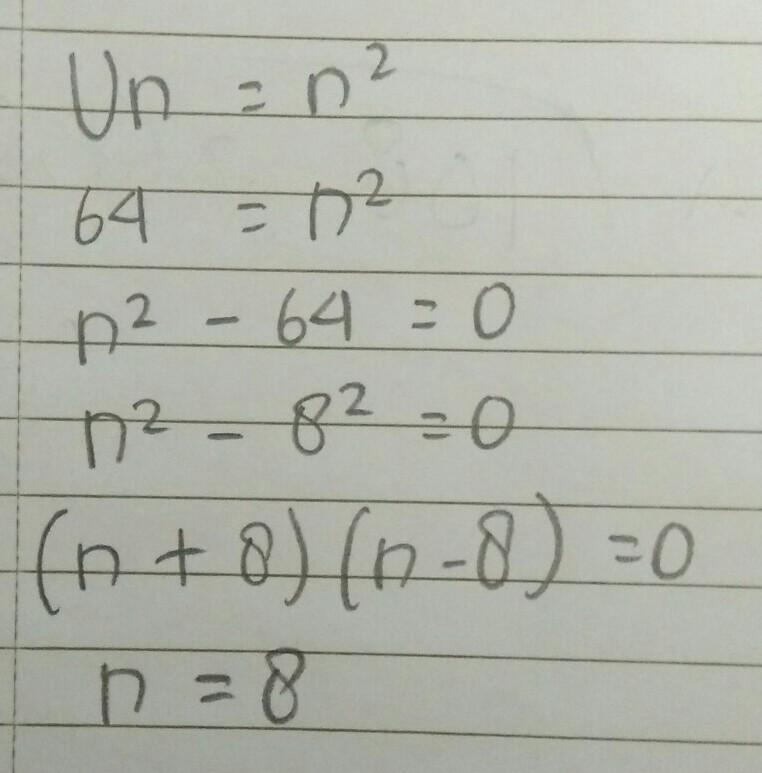 Un = n²
64 = n²
n² - 64 = 0
n² - 8² = 0
(n + 8)(n - 8) = 0
n = 8